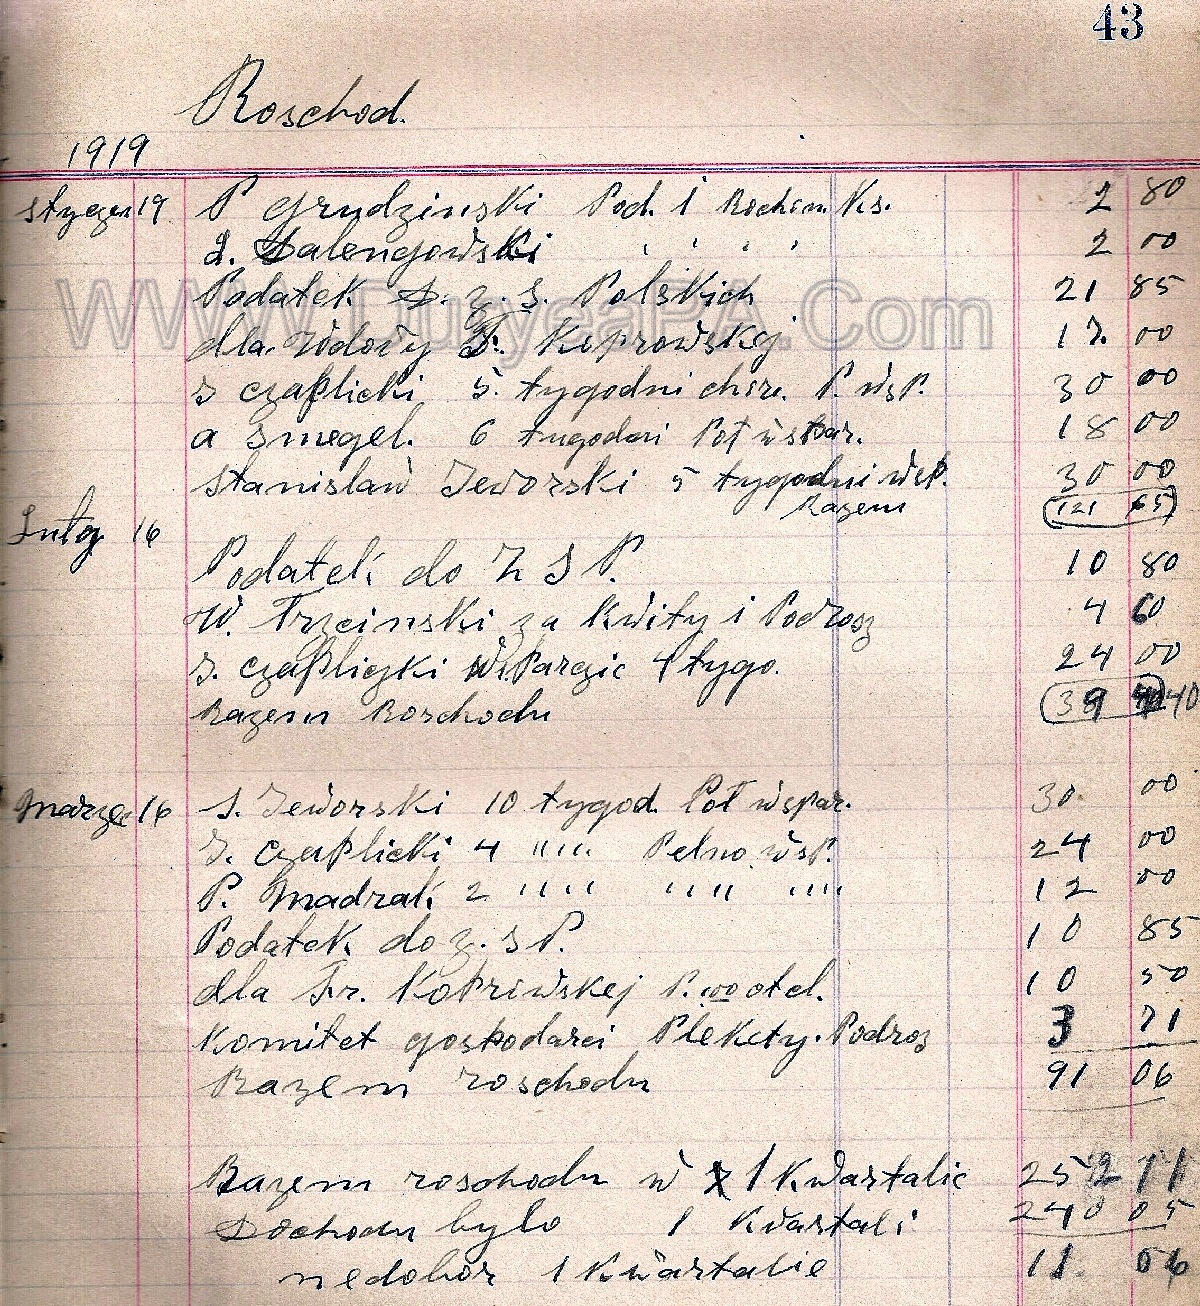 43
Roschod.
1919
Styczen 19 P Grudzinski Pod. 1 Rochun. Ks. 2 80
Dalengowski " " " " 2 00
Podatek D. Z. S. Polskich 21 85
dla. Wdowy F. Koprowskej 17. 00
J Czaplicki 5. tygodni chor. P. wsp. 30 00
a Smegel. 6 tugodni Poł wspar. 18 00
Stanislaw Jeworski 5 tygodni wsp. 30 00
Razem 121 65
Luty 16
Podatek do Z S P. 10 80
W. Trzcinski za kwity i Podrosz 4 60
J. Czapliczki wsparzie 4 tygo. 24 00
Razem Roschodu 39 40
Marzec 16 S. Jeworski 10 tygod. Poł wspar. 30 00
J. Czaplicki 4 """" Pelno wsp. 24 00
P. Madrak 2 """" """" """" 12 00
Podatek do Z. S P. 10 85
dla Fr. Kopriwskej P. otel. 10 50
Komitet gospodarci Plekety. Podros 3 71
Razem roschodu 91 06
Razem roschodu w 1 Kwartalie 252 11
Dochodu bylo 1 Kwartali 240 05
nedobor 1 Kwartalie 11. 06
WWW.DuryeaPA.Com